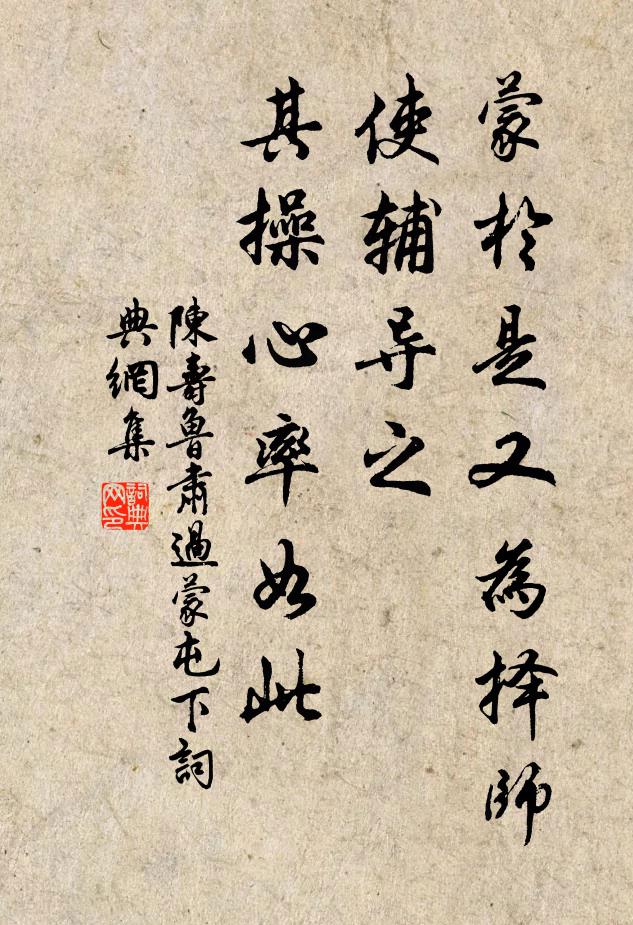 蒙於是又為择師
使辅导之
其操心率如此
陳壽魯肅過蒙屯下詞
典網集
詞典
网印